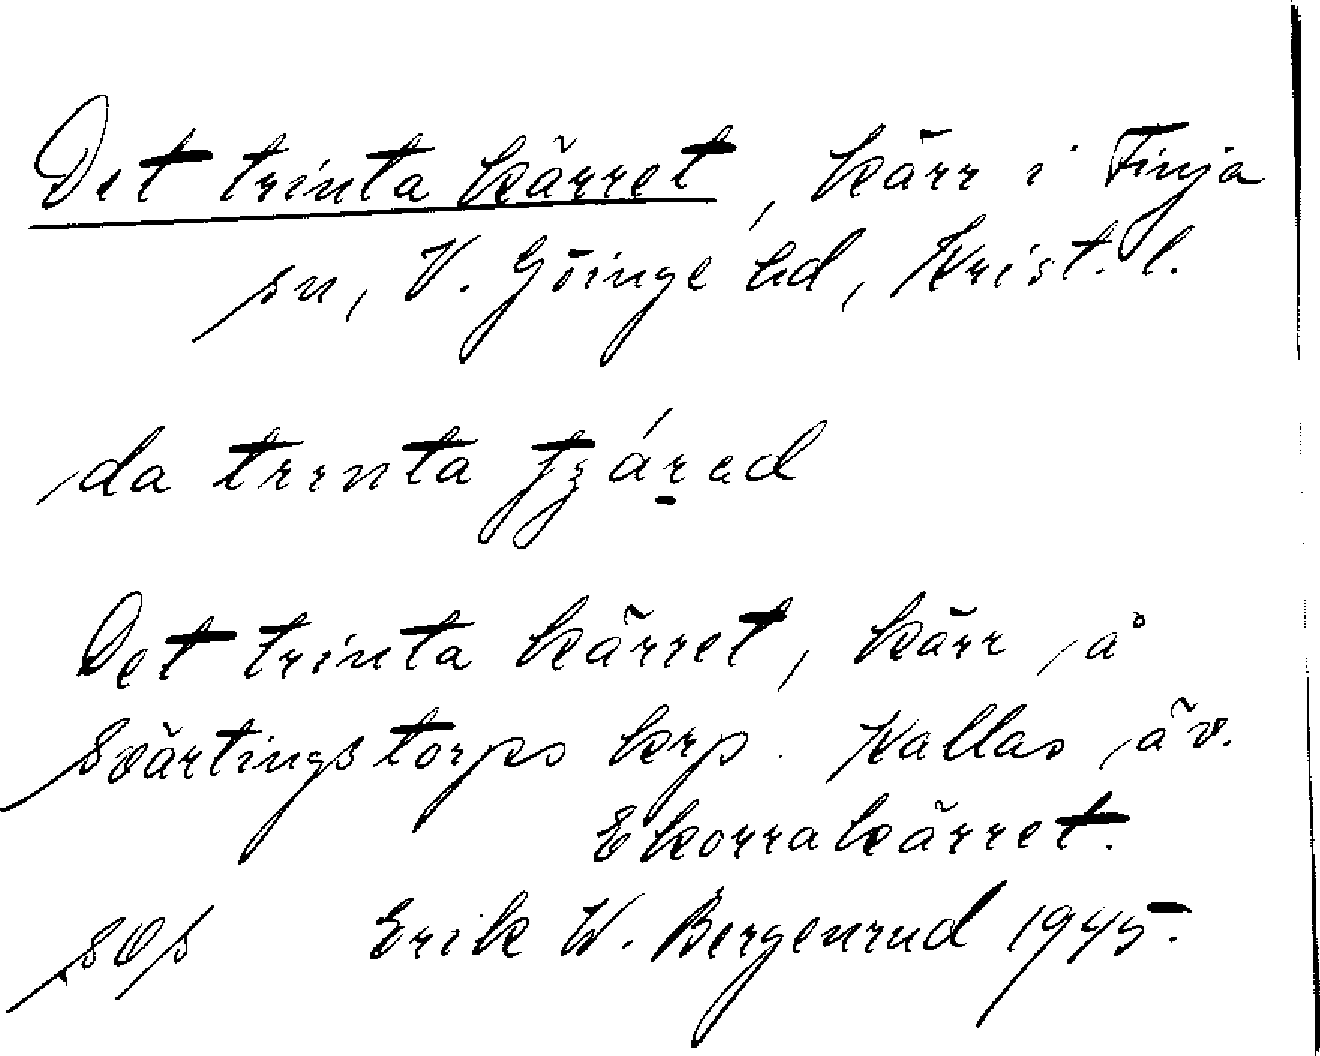 Det trinta kärret, kärr i Finja
sn, V. Göinge hd, Krist. l.
da trınta
Det trinta kärret, kärr å
Svärtingstorps krp. Kallas äv.
Ekorrakärret.
Erik W. Bergenrud 1945.